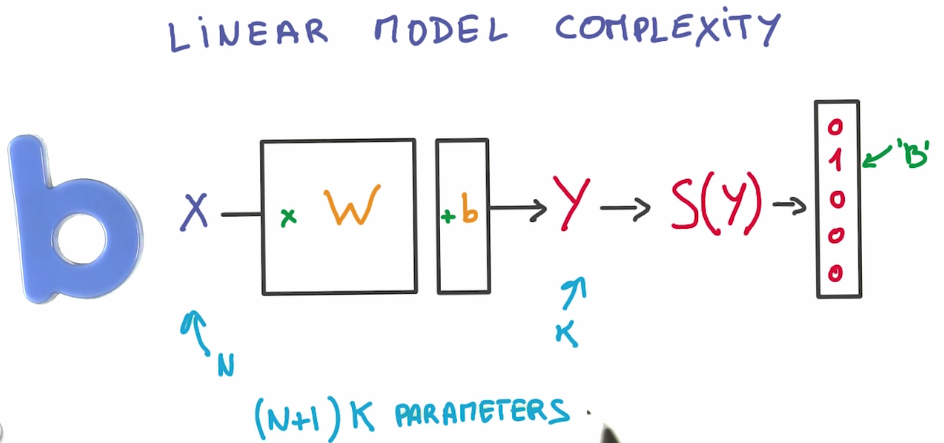 LINEAR MODEL COMPLEXITY
b X × W + b → Y → S(Y) → 0 1 0 0 0 ← 'B'
N K
(N+1) K PARAMETERS